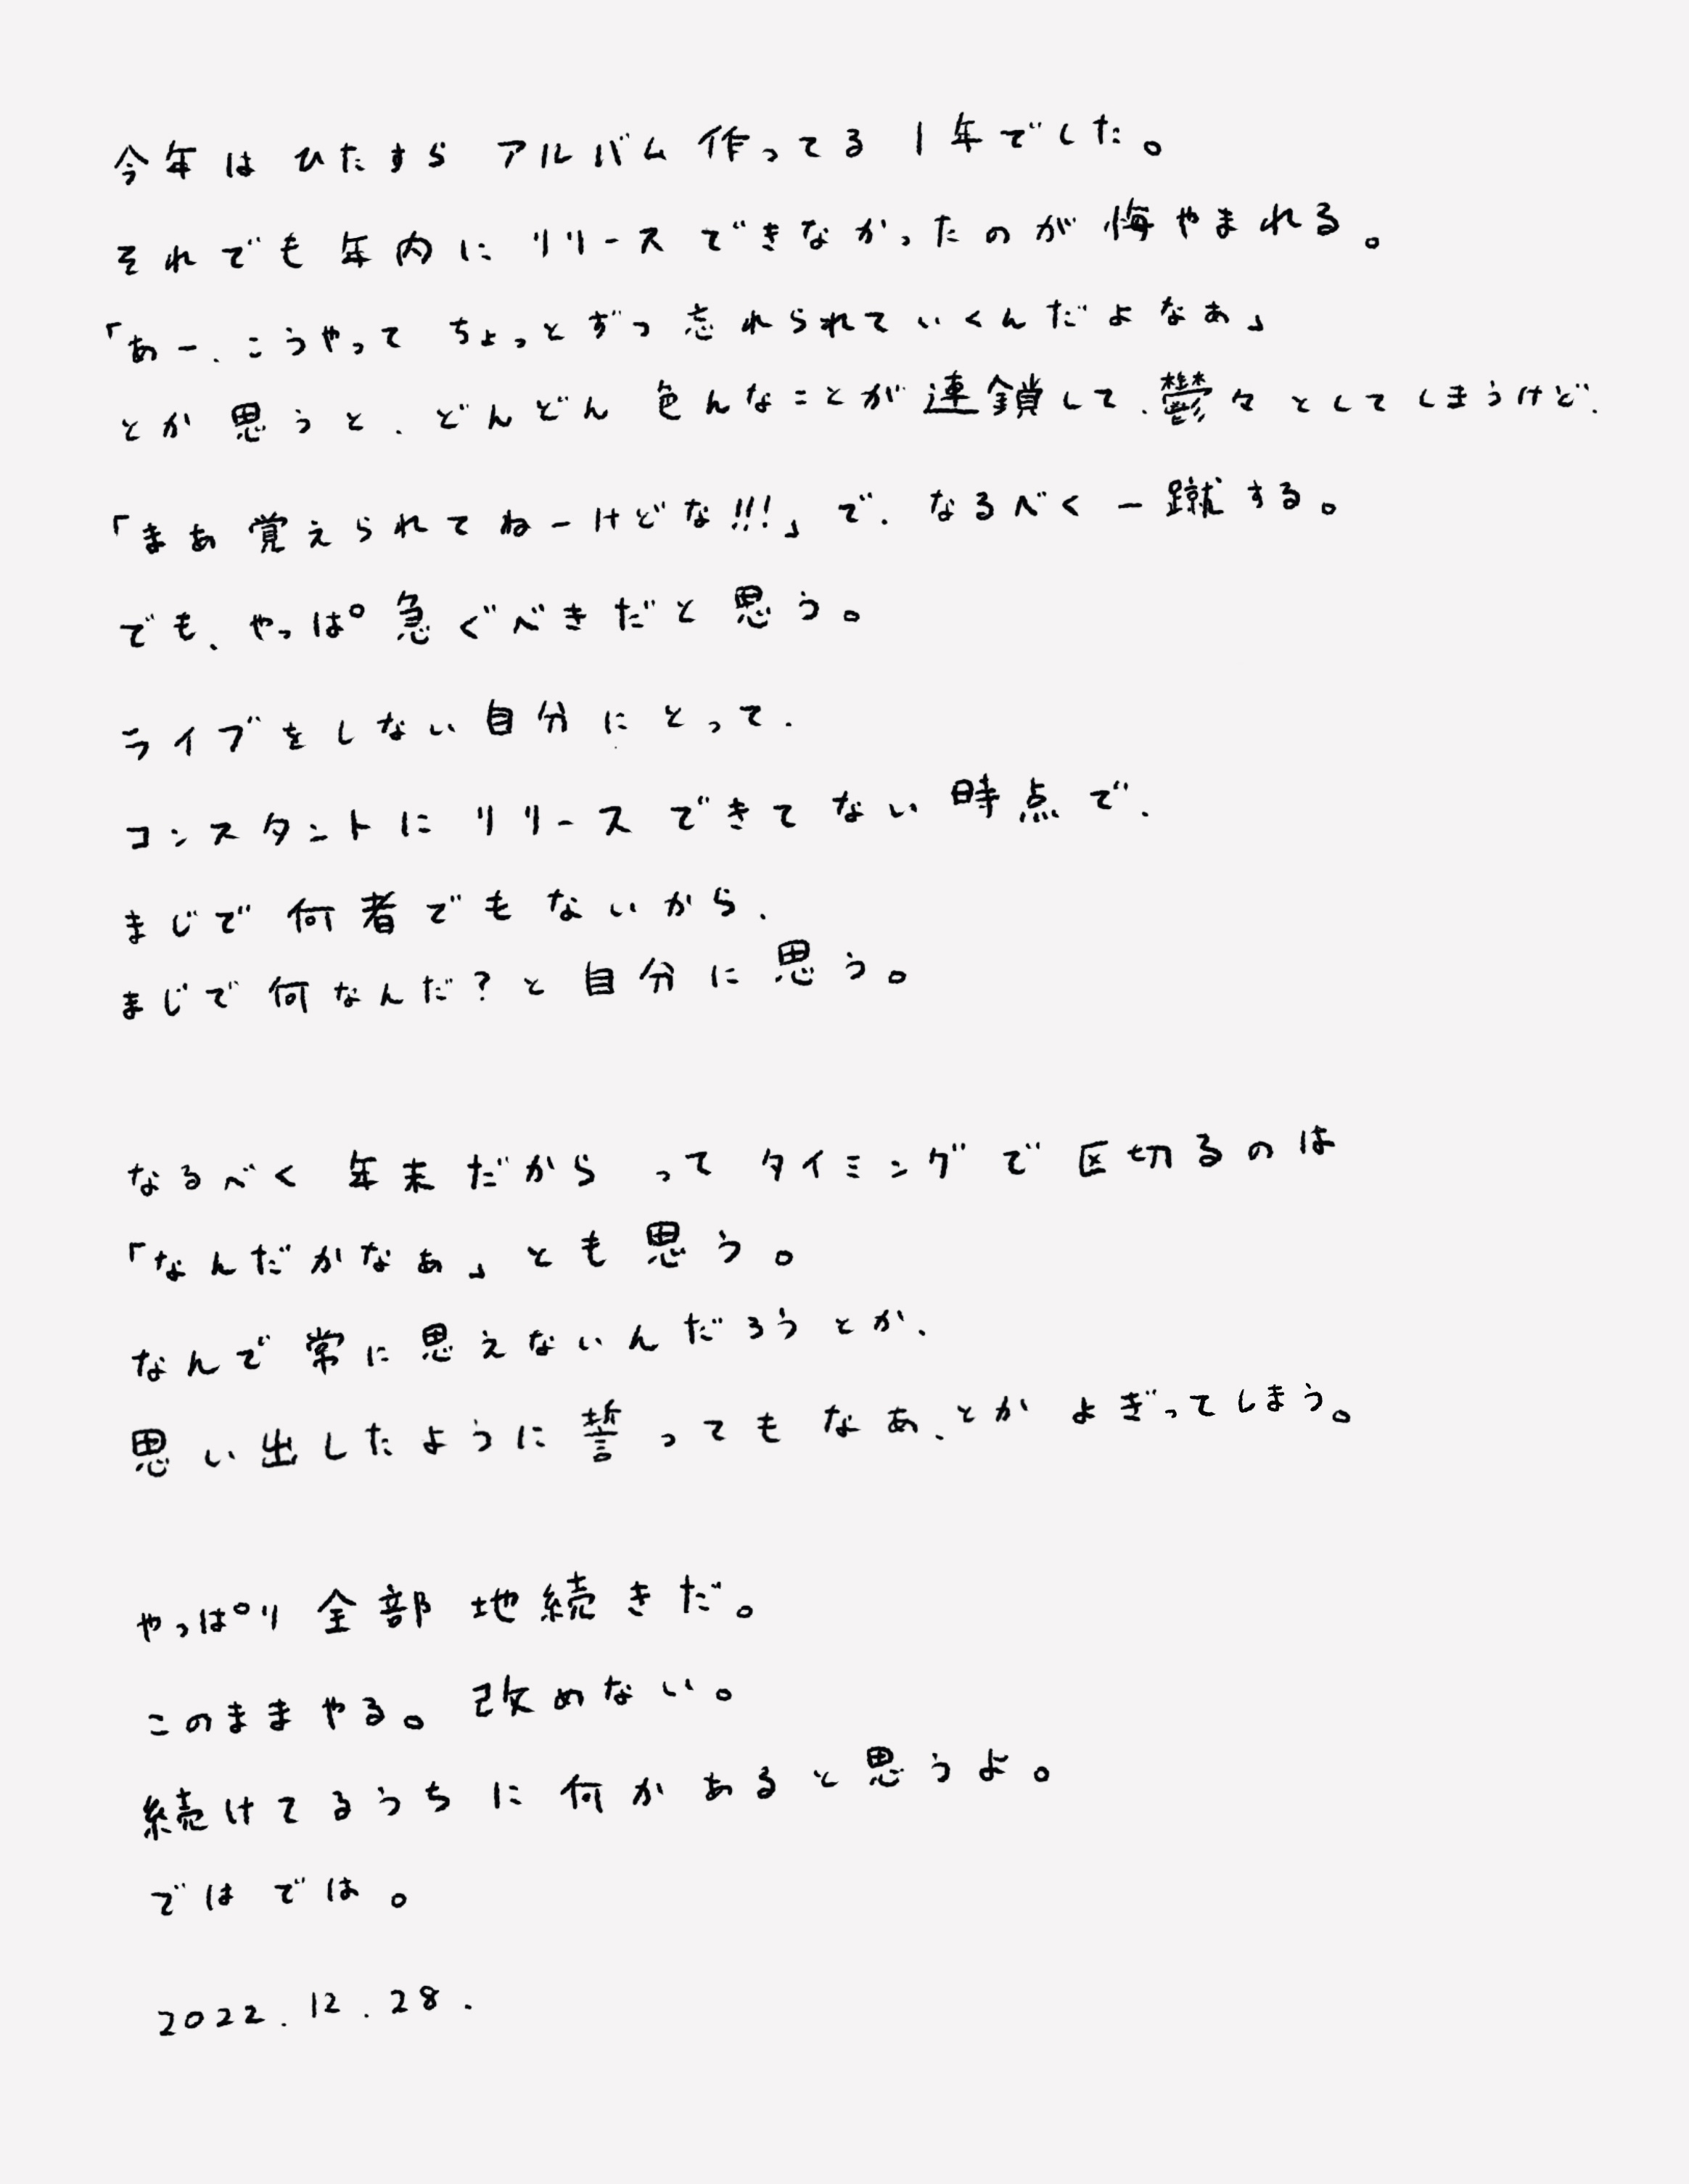 今年は ひたすら アルバム 作ってる 1年でした。
それでも 年内に リリース できなかったのが 悔やまれる。
「あー、こうやって ちょっとずつ 忘れられていくんだよなぁ」
とか 思うと、どんどん 色んなことが 連鎖して、鬱々としてしまうけど、
「まあ 覚えられてねーけどな!!!」で、なるべく 一蹴する。
でも、やっぱ 急ぐべきだと 思う。
ライブをしない 自分にとって、
コンスタントに リリース できてない 時点で、
まじで 何者でもないから、
まじで 何なんだ?と 自分に 思う。
なるべく 年末だから って タイミングで 区切るのは
「なんだかなぁ」とも 思う。
なんで 常に 思えないんだろうとか、
思い出したように 誓ってもなあ、とか よぎってしまう。
やっぱり 全部 地続きだ。
このままやる。改めない。
続けてるうちに 何かあると思うよ。
ではでは。
2022.12.28.